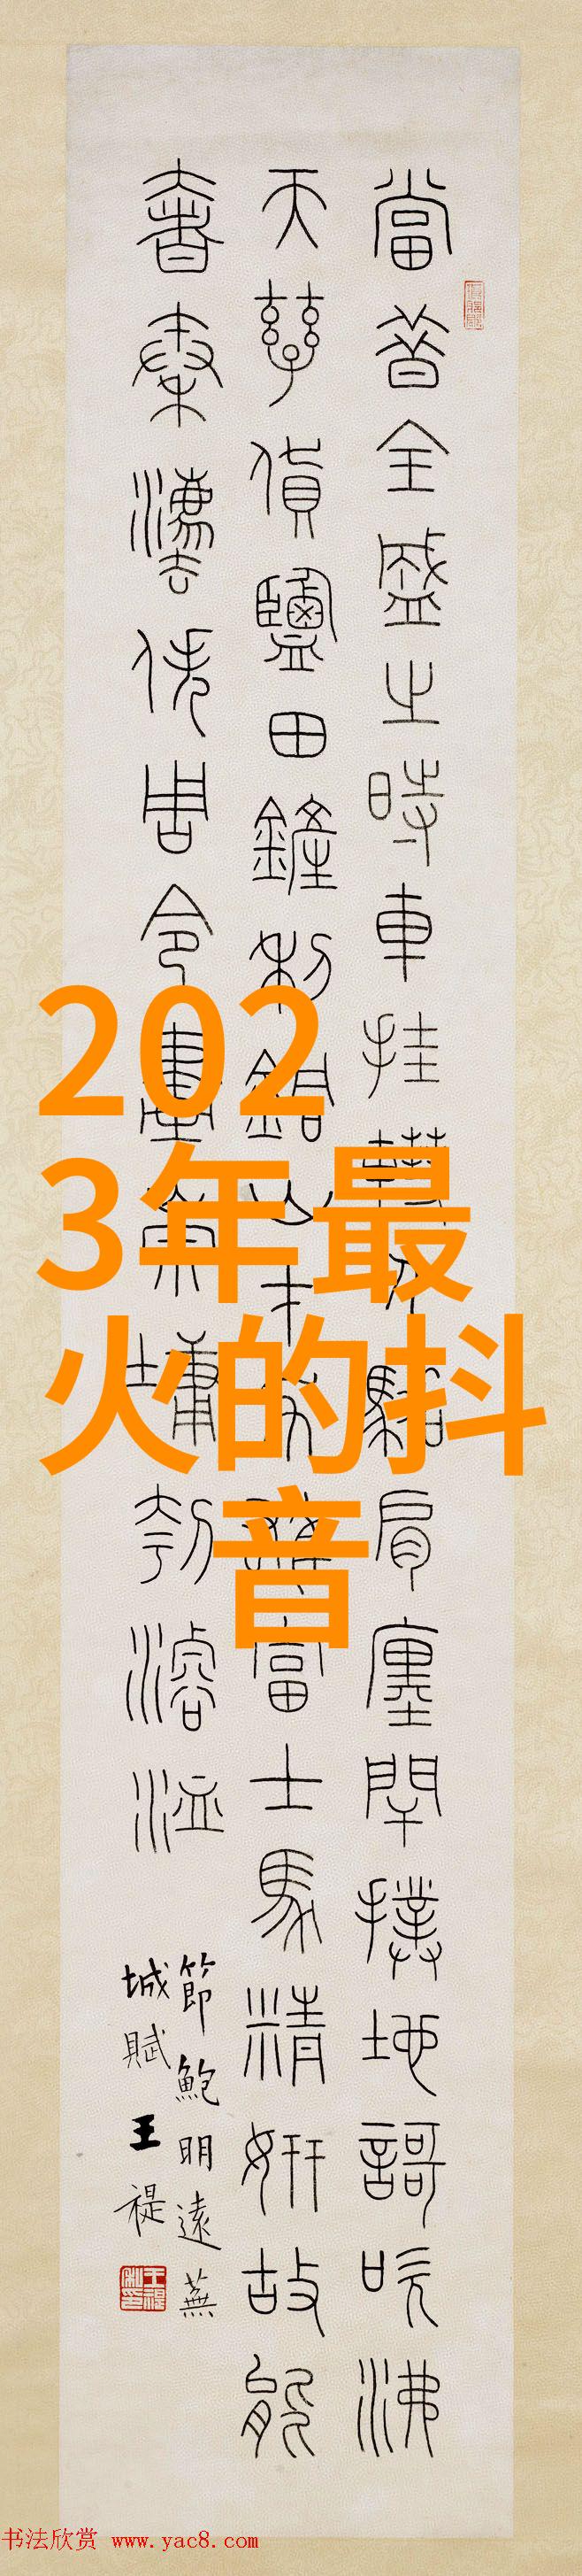 當昔全盛之時車挂轊人駕肩廛閈撲地謌吹沸
天孳貨鹽田鏟利銅山才力雄富士馬精妍故能
奢秦灋佚周令畫崇墉刳濬洫
節鮑明遠蕪
城賦 王禔
王禔私印
202
3年最
火的抖
音
书法欣赏 www.yac8.com